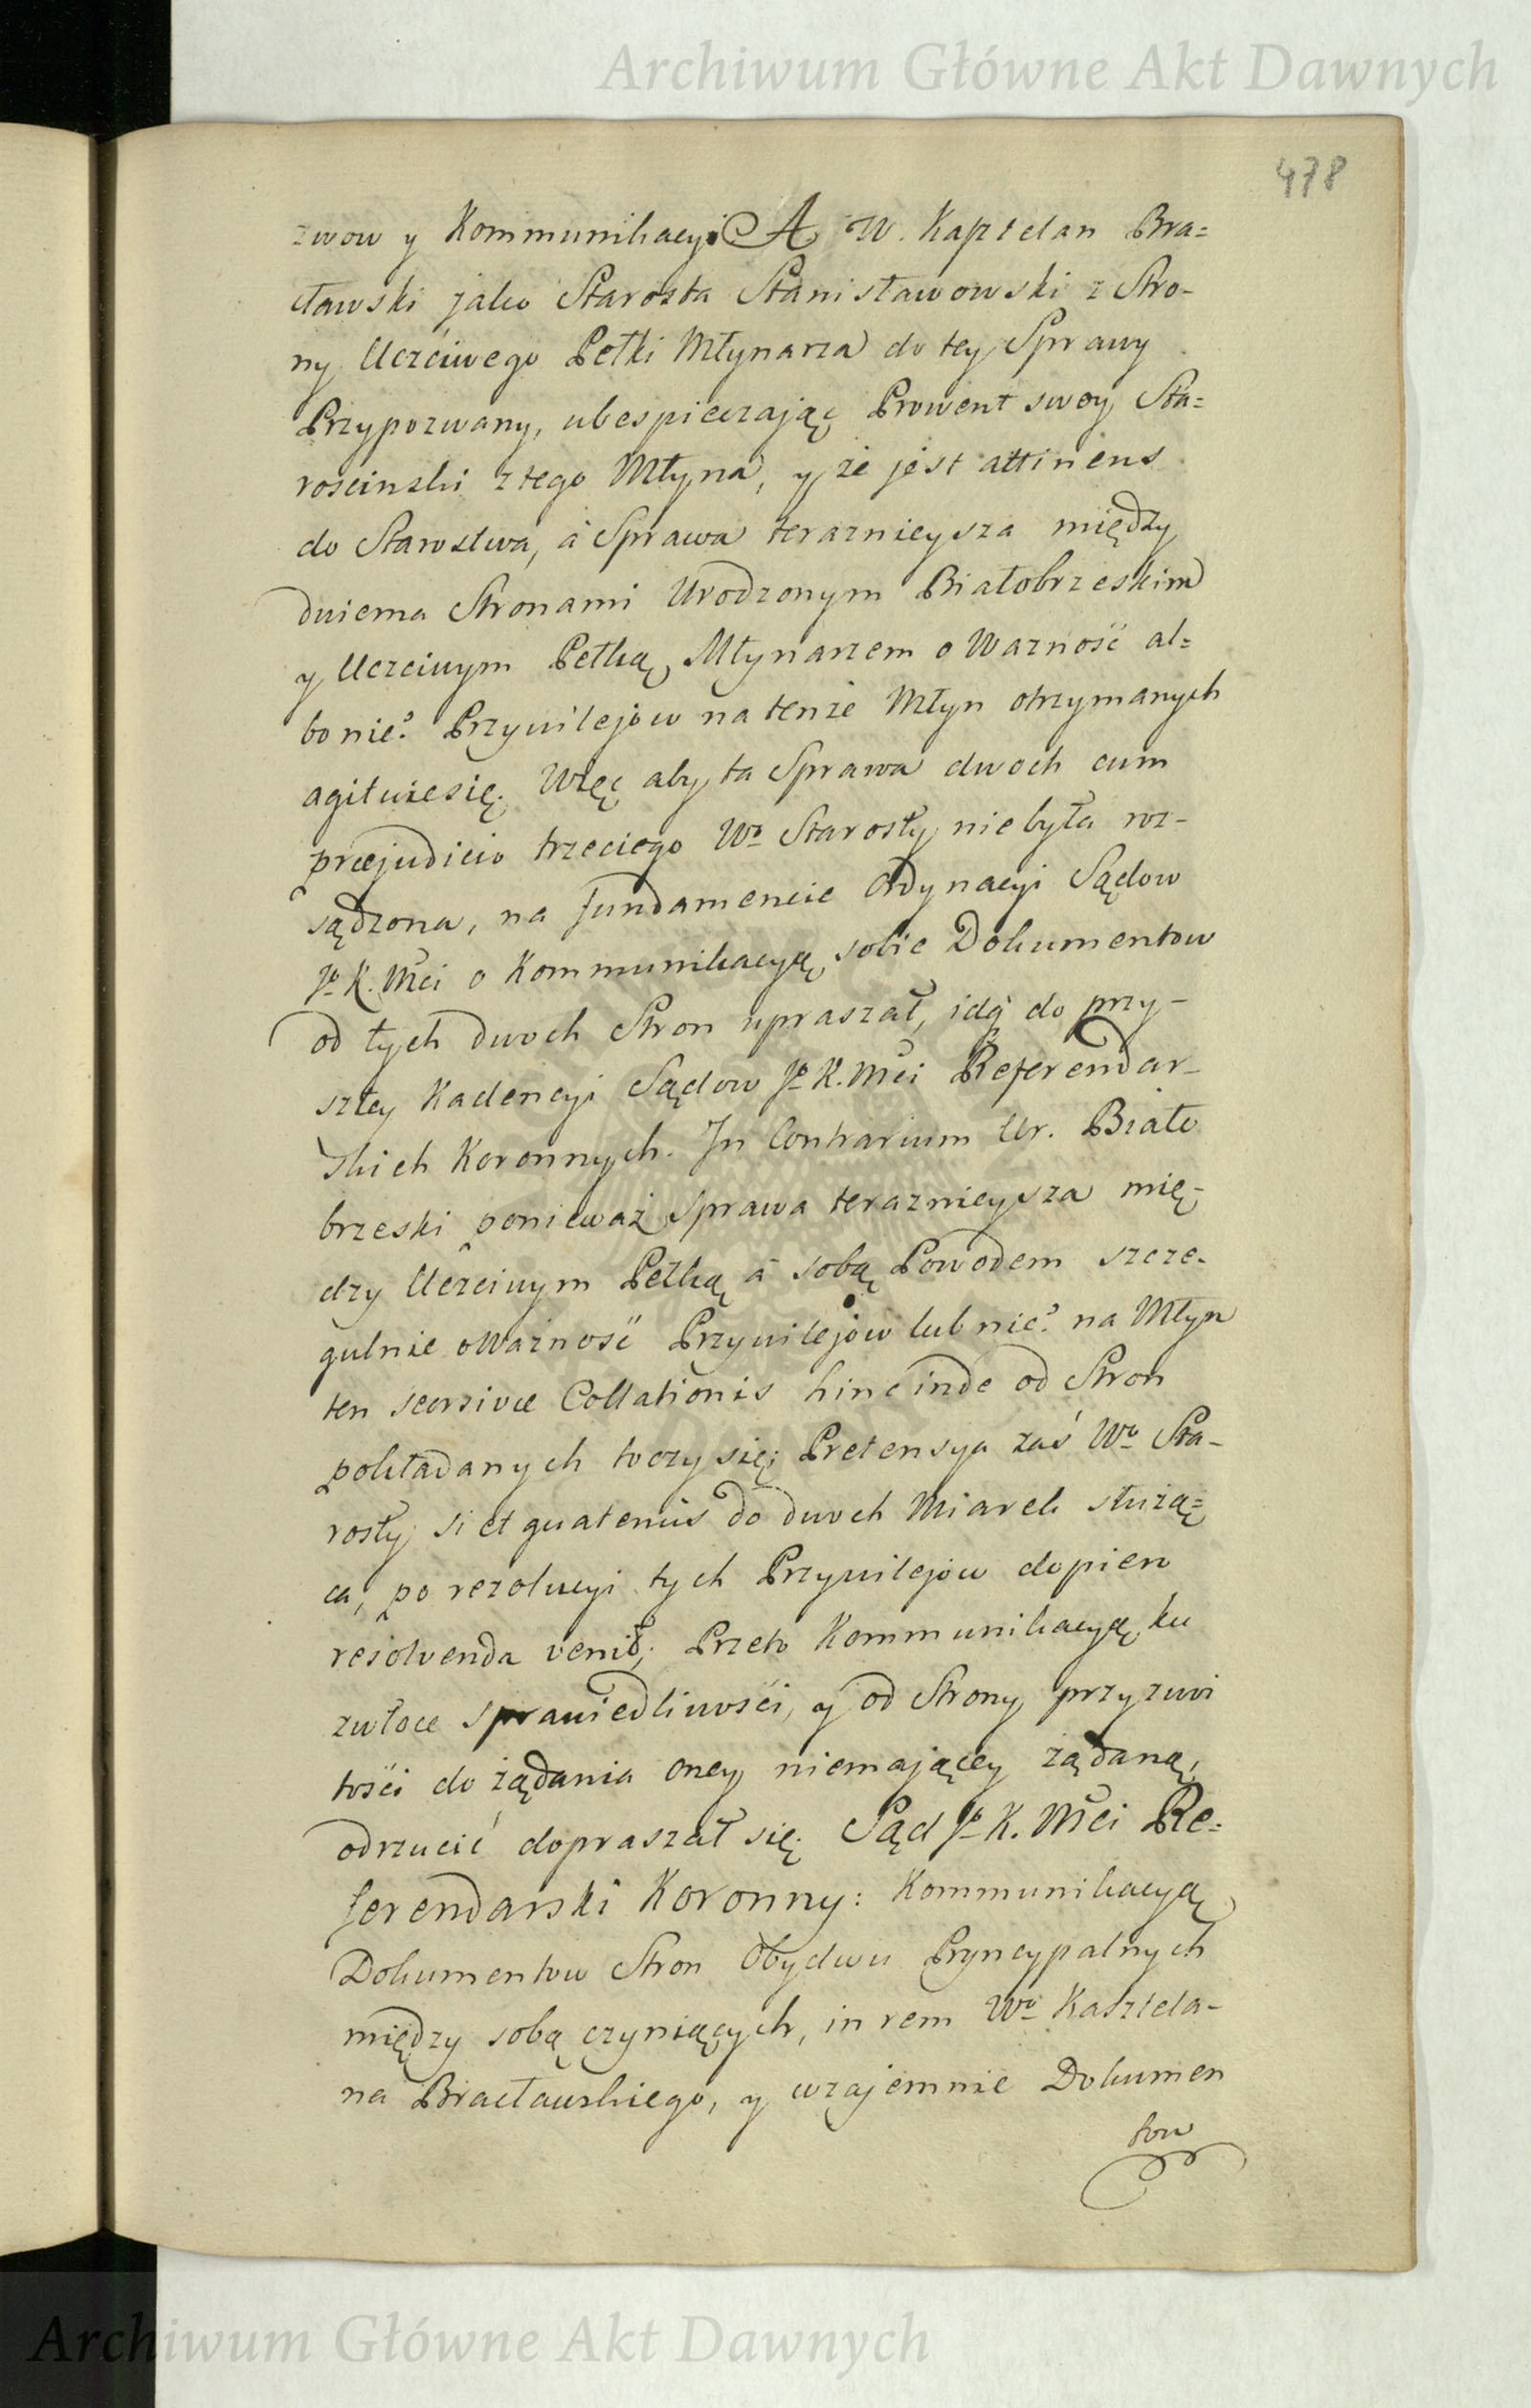 Archiwum Główne Akt Dawnych
478
zwow y Kommunikacyi A W. Kasztelan Bra=
cławski jako Starosta Stanisławowski z Stro-
ny Uczciwego Pełki Młynarza do tey Sprawy
Przypozwany, ubespieczając Prowent swoy Sta=
rościnski z tego Młyna, y że jest attinens
do Starostwa, à Sprawa teraznieysza między
dwiema Stronami Urodzonym Białobrzeskim
y Uczciwym Pełką Młynarzem o Ważność al=
bo nie? Przywilejow na tenże Młyn otrzymanych
agituie się. Więc aby ta Sprawa dwoch cum
præjudicio trzeciego Wo Starosty nie była roz-
sądzona, na fundamencie Ordynacyi Sądow
Jo K. Mci o Kommunikacyą sobie Dokumentow
od tych dwoch Stron upraszał, idq do przy-
szłey Kadencyi Sądow Jo K. Mci Referendar-
skich Koronnych. In Contrarium Ur. Biało
brzeski ponieważ Sprawa teraznieysza mię-
dzy Uczciwym Pełką à sobą Powodem szcze-
gulnie o Ważność Przywilejow lub nie? na Młyn
ten seorsivæ Collationis hinc inde od Stron
pokładanych toczy się; Pretensya zaś Wo Sta-
rosty si et quatenus do dwoch Miarek służą=
ca, po rezolucyi tych Przywilejow dopiero
resolvenda venit; Przeto Kommunikacyą ku
zwłoce sprawiedliwości, y od Strony przyzwoi
tości do żądania oney niemającey żądaną,
odrzucić dopraszał się. Sąd Jo K. Mci Re=
ferendarski Koronny: Kommunikacyą
Dokumentow Stron Obydwu Pryncypalnych
między sobą czyniących, in rem Wo Kasztela-
na Bracławskiego, y wzajemnie Dokumen
tow
Archiwum Główne Akt Dawnych